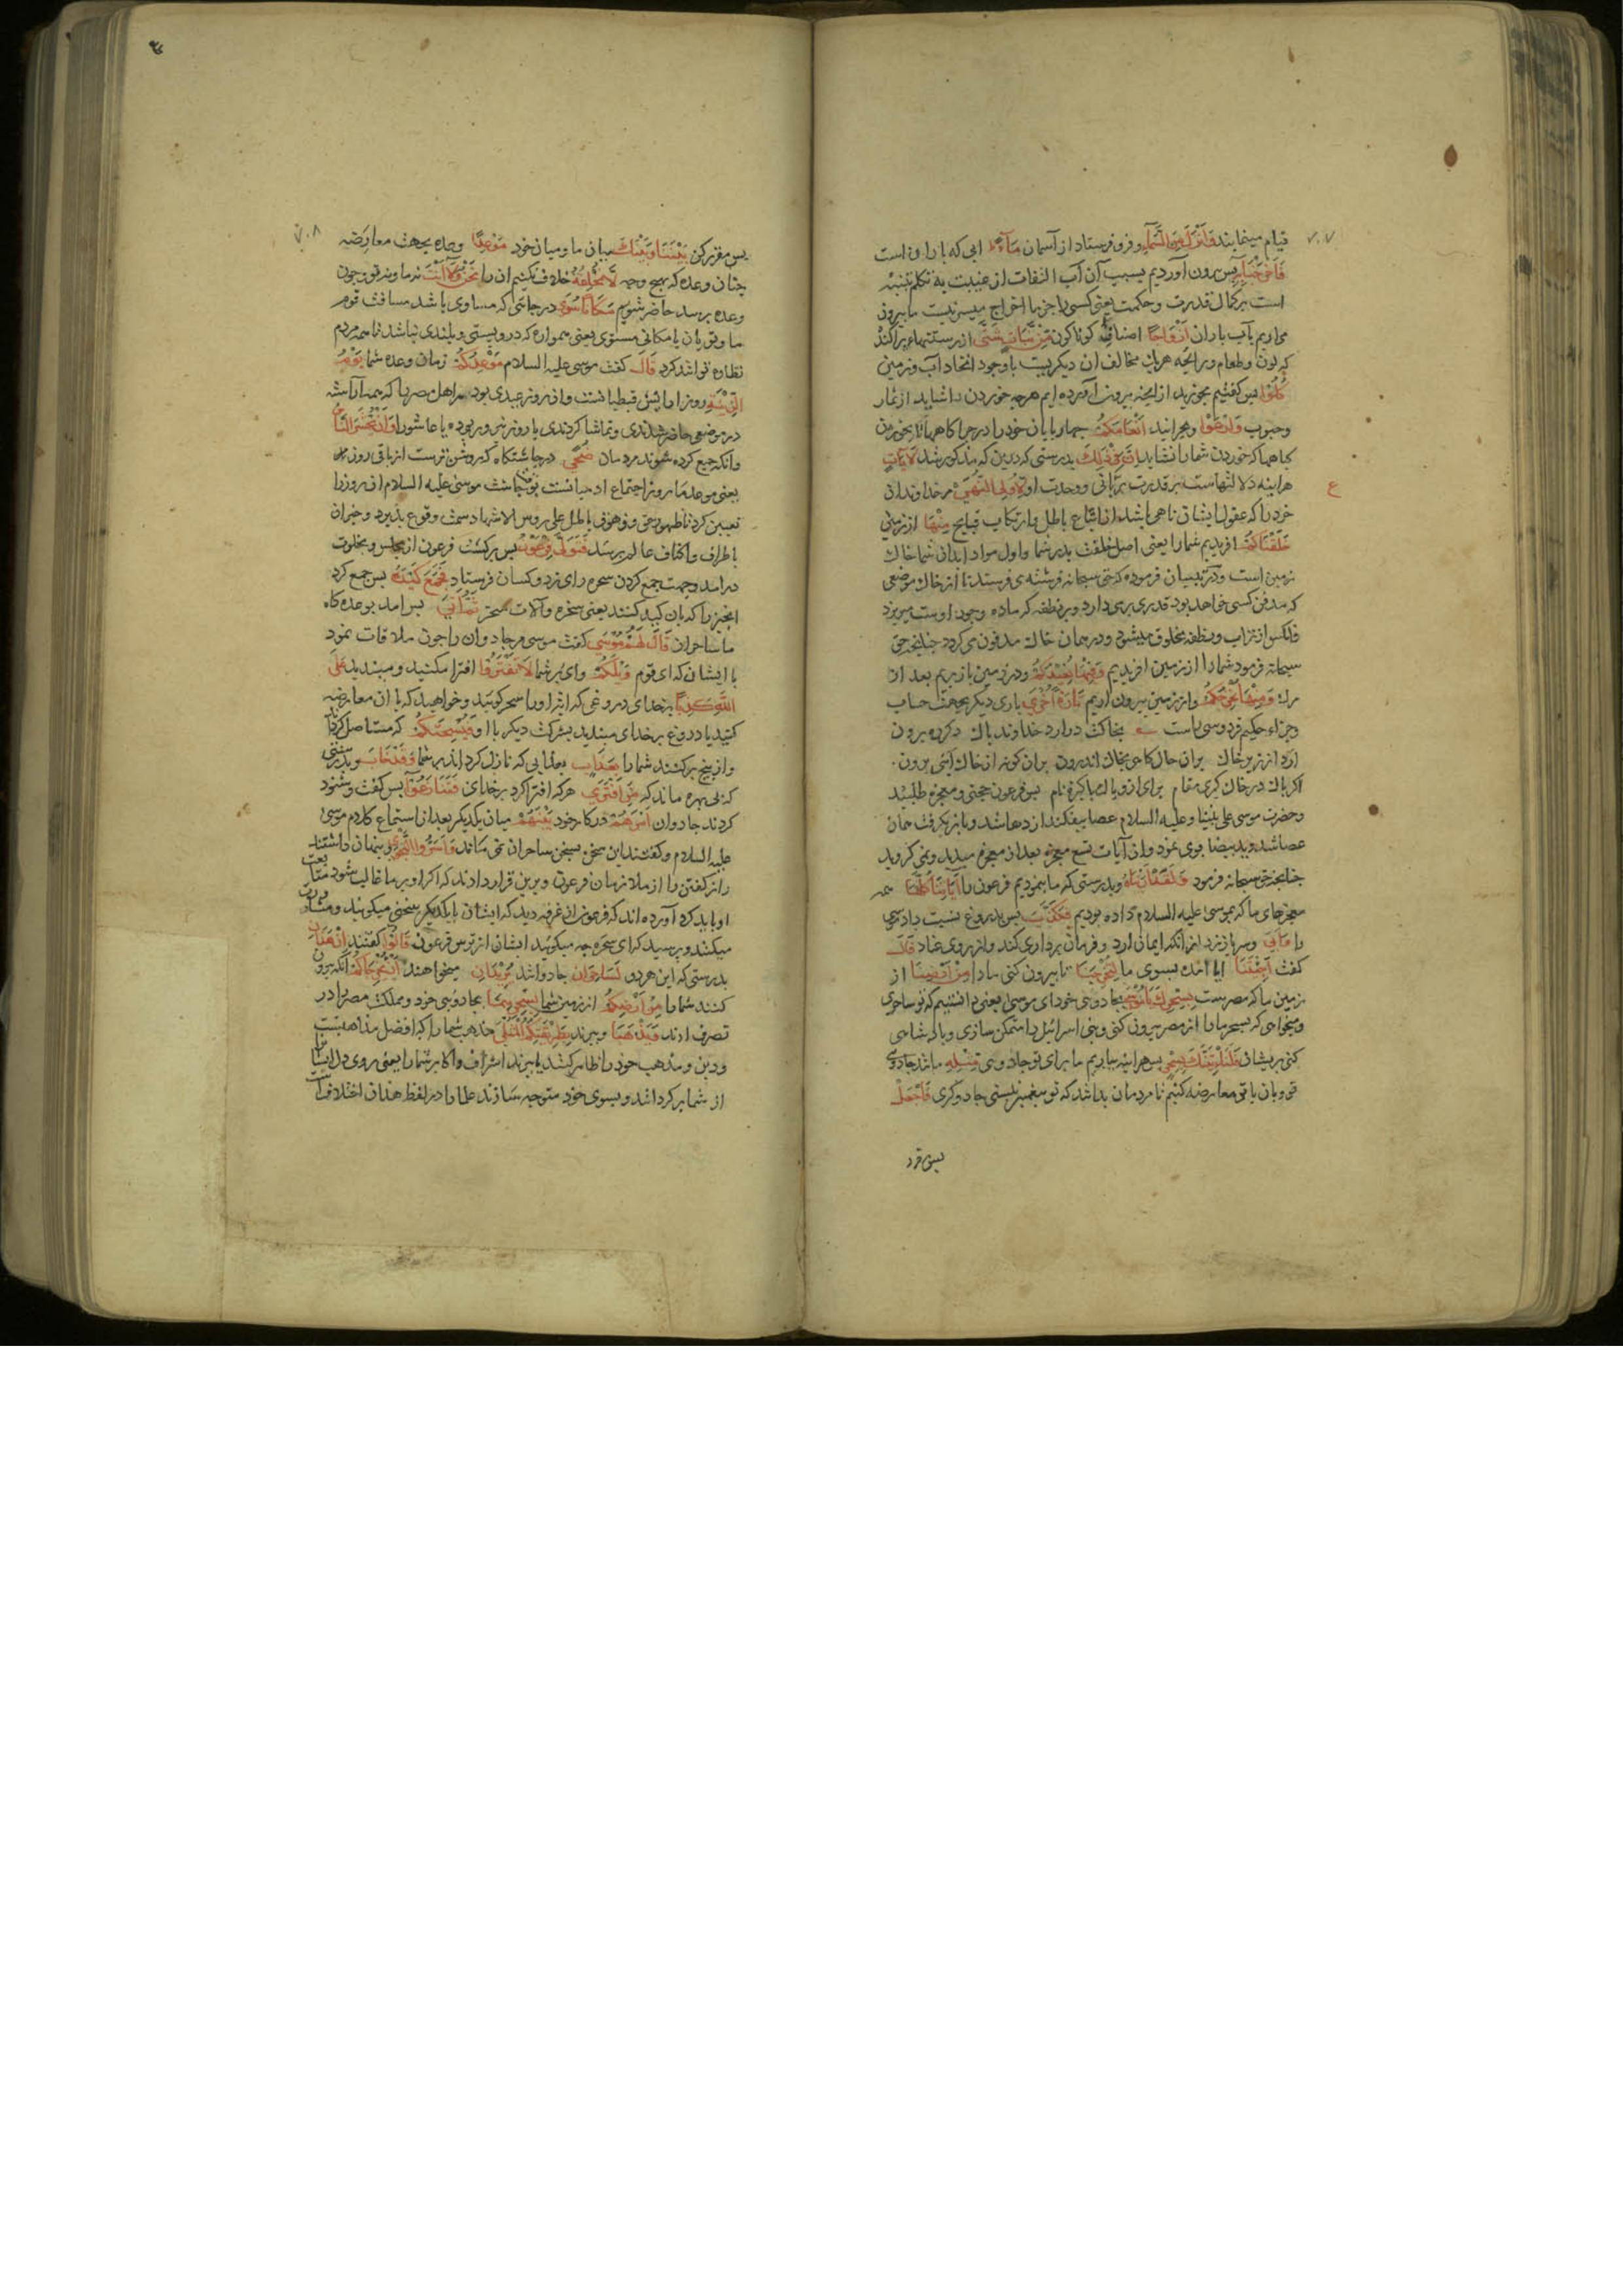 ۷۰۷
قیام مینمایند وَاَنْزَلَ مِنَ السَّمَآءِ و فرو فرستاد از آسمان مَآءً ابی که باران است
فَاَخْرَجْنَا بِهِ پس بیرون آوردیم بسبب آن آب التفات از غیبت به تکلم تنبیه
است بر کمال قدرت و حکمت یعنی کسی را جز ما اخراج میسر نیست ما بیرون
می اریم بآب باران اَزْوَاجًا اصناف کوناکون مِنْ نَبَاتٍ شَتّٰی از رستنیهاء پراکنده
که لون و طعم و رایحه هر یک مخالف ان دیکریست با وجود اتحاد آب و زمین
کُلُوْا پس کفتیم بخورید از انچه بیرون آورده ایم هرچه خوردن را شاید از ثمار
و حبوب وَارْعَوْا و بچرانید اَنْعَامَکُمْ چهارپایان خود را در چراکاهها تا بخورند
کیاهها که خوردن شما را نشاید اِنَّ فِی ذٰلِکَ بدرستی که درین که مذکور شد لَاٰیَاتٍ
هراینه دلالتهاست بر قدرت ربانی و وحدت او لِاُولِی النُّهٰی مر خداوندان
خرد را که عقول ایشان ناهی باشد از اتباع باطل و ارتکاب قبایح مِنْهَا از زمین
خَلَقْنَاکُمْ افریدیم شما را یعنی اصل خلقت پدر شما و اول مواد ابدان شما خاک
زمین است و در تبیان فرموده که حق سبحانه فرشته می فرستد تا از خاک موضعی
که مدفن کسی خواهد بود قدری برمی دارد و بر نطفه که ماده وجود اوست میریزد
فلکس از تراب و نطفه مخلوق میشود و در همان خاک مدفون می کردد چنانچه حق
سبحانه فرمود شما را از زمین افریدیم وَفِیْهَا نُعِیْدُکُمْ و در زمین باز بریم بعد از
مرک وَمِنْهَا نُخْرِجُکُمْ و از زمین بیرون اریم تَارَةً اُخْرٰی باری دیکر بجهت حساب
و جزاء حکیم فردوسی راست بخاکت درارد خداوند پاک دکر ره برون
ارد از زیر خاک بران حال کامی بخاک اندرون بران کونه از خاک ایی برون.
اکر پاک در خاک کیری مقام برای ازو پاک پاکیزه نام پس فرعون حجتی و معجزه طلبید
و حضرت موسی علی نبینا و علیه السلام عصا بیفکند اژدها شد و باز بکرفت همان
عصا شد و ید بیضا بوی نمود و از آیات تسع معجزه بعد از معجزه میدید و نمی کروید
چنانچه حق سبحانه فرمود وَلَقَدْ اَرَیْنَاهُ و بدرستی که ما بنمودیم فرعون را اٰیَاتِنَا کُلَّهَا همه
معجزهای ما که بموسی علیه السلام داده بودیم فَکَذَّبَ پس بدروغ نسبت داد موسی
را وَاَبٰی و سر باز زد از انکه ایمان ارد و فرمان برداری کند و از روی عناد قَالَ
کفت اَجِئْتَنَا ایا امده بسوی ما لِتُخْرِجَنَا تا بیرون کنی ما را مِنْ اَرْضِنَا از
زمین ما که مصر است بِسِحْرِکَ یَا مُوْسٰی بجادوئی خود ای موسی یعنی دانستیم که تو ساحری
و میخواهی که بسحر ما را از مصر بیرون کنی و بنی اسرائیل را متمکن سازی و پادشاهی
کنی بریشان فَلَنَأْتِیَنَّکَ بِسِحْرٍ پس هراینه بیاریم ما برای تو جادوئی مِثْلِهٖ مانند جادوی
تو و بان با تو معارضه کنیم تا مردمان بدانند که تو پیغمبر نیستی جادوکری فَاجْعَلْ
ع
پس مقرر
۷۰۸
پس مقرر کن بَیْنَنَا وَبَیْنَکَ میان ما و میان خود مَوْعِدًا وعده بجهت معارضه
چنان وعده که بهیچ وجه لَا نُخْلِفُهُ خلاف نکنیم ان را نَحْنُ وَلَا اَنْتَ نه ما و نه تو و چون
وعده برسد حاضر شویم مَکَانًا سُوًی در جائی که مساوی باشد مسافت قوم
ما و تو بان یا مکانی مستوی یعنی هموار که درو پستی و بلندی نباشد تا همه مردم
نظاره توانند کرد قَالَ کفت موسی علیه السلام مَوْعِدُکُمْ زمان وعده شما یَوْمُ
الزِّیْنَةِ روز ارایش قبطیانست و ان روز عیدی بود مر اهل مصر را که همه آراسته
در موضعی حاضر شدندی و تماشا کردندی یا روز نیروز بوده یا عاشورا وَاَنْ یُحْشَرَ النَّاسُ
و انکه جمع کرده شوند مردمان ضُحًی در چاشتکاه که روشن ترست از باقی روز
یعنی موعد ما روز اجتماع ادمیانست بوقت چاشت موسی علیه السلام ان روز را
تعیین کرد تا ظهور حق و زهوق باطل علی رؤس الاشهاد سمت وقوع پذیرد و خبر ان
باطراف و اکناف عالم برسد فَتَوَلّٰی فِرْعَوْنُ پس برکشت فرعون از مجلس و بخلوت
در امد و جهت جمع کردن سحره رای زد و کسان فرستاد فَجَمَعَ کَیْدَهُ پس جمع کرد
انچیز را که بان کید کنند یعنی سخره و آلات سحر ثُمَّ اَتٰی پس امد بوعده کاه
با ساحران قَالَ لَهُمْ مُوْسٰی کفت موسی مر جادوان را چون ملاقات نمود
با ایشان که ای قوم وَیْلَکُمْ وای بر شما لَا تَفْتَرُوْا افترا مکنید و مبندید عَلَی
اللّٰهِ کَذِبًا بر خدای دروغی که ایات او را سحر کویید و خواهید که با ان معارضه
کنید یا دروغ بر خدای مبندید بشرکت دیکر با او فَیُسْحِتَکُمْ که مستاصل کرداند
و از بیخ برکنند شما را بِعَذَابٍ بعذابی که نازل کرداند بر شما وَقَدْ خَابَ و بدرستی
که بی بهره ماند که مَنِ افْتَرٰی هر که افترا کرد بر خدای فَتَنَازَعُوْا پس کفت و شنود
کردند جادوان اَمْرَهُمْ در کار خود بَیْنَهُمْ میان یکدیکر بعد از استماع کلام موسی
علیه السلام و کفتند این سخن بسخن ساحران نمی ماند وَاَسَرُّوا النَّجْوٰی و پنهان داشتند
راز کفتن را از ملازمان فرعون و برین قرار دادند که اکر او بر ما غالب شود متابعت
او باید کرد آورده اند که فرعون از غرفه دید که ایشان با یکدیکر سخنی میکویند و مشاورت
میکنند و پرسید که ای سحره چه میکویید ایشان از ترس فرعون قَالُوْا کفتند اِنْ هٰذَانِ
بدرستی که این هر دو لَسَاحِرَانِ جادوانند یُرِیْدَانِ میخواهند اَنْ یُخْرِجَاکُمْ انکه بیرون
کنند شما را مِنْ اَرْضِکُمْ از زمین شما بِسِحْرِهِمَا بجادوئی خود و مملکت مصر را در
تصرف ارند وَیَذْهَبَا و ببرند بِطَرِیْقَتِکُمُ الْمُثْلٰی مذهب شما را که افضل مذاهبست
و دین و مذهب خود را ظاهر کنند یا ببرند اشراف و اکابر شما را یعنی روی دل ایشان
از شما بر کردانند و بسوی خود متوجه سازند علما را در لفظ هذان اختلاف است